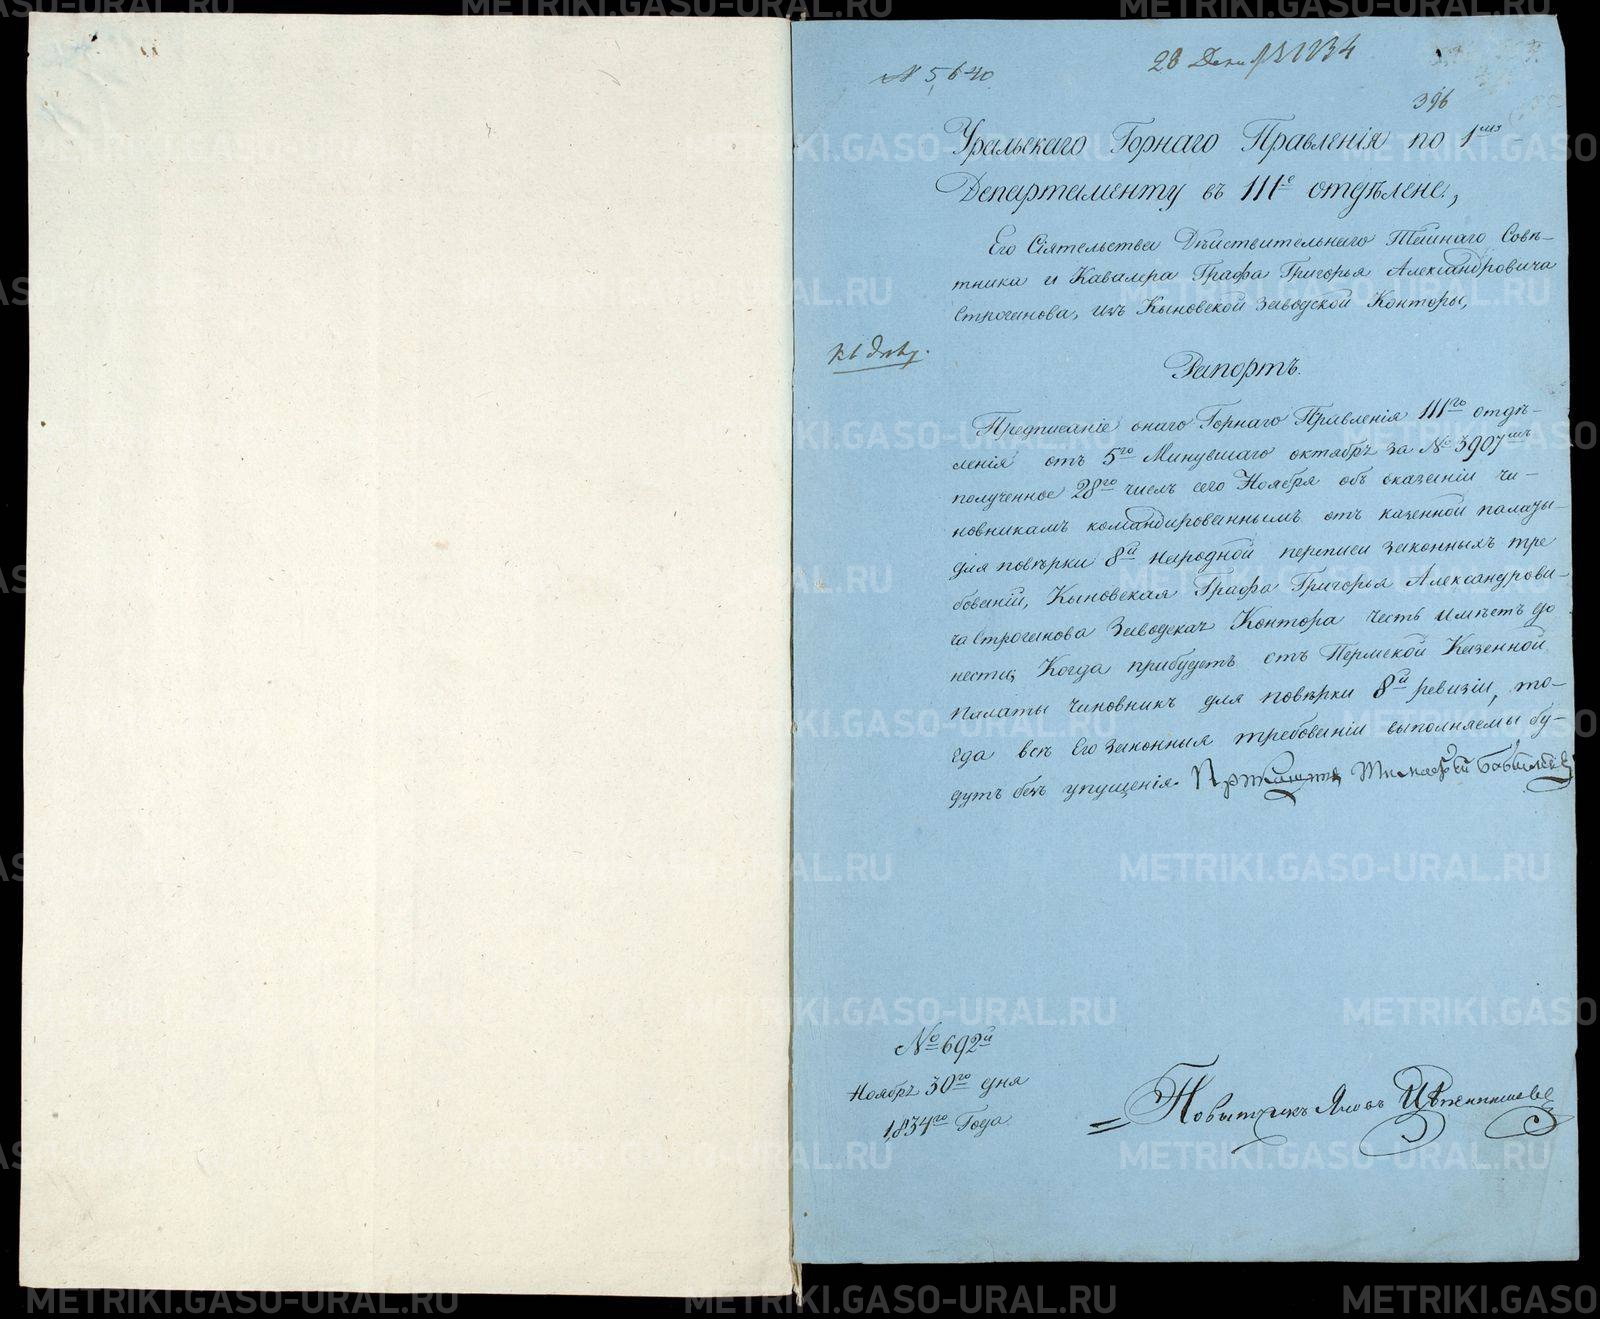 № 5,640.
28 Декаб 1834
396
Уральскаго Горнаго Правленія по 1му
Департаменту въ III е отдѣлене,
Его Сіятельства Дѣйствительнаго Тайнаго Совѣ-
тника и Кавалера Графа Григорья Александровича
Строганова, изъ Кыновской Заводской Конторы,
Къ дѣлу.
Рапортъ.
Предписаніе онаго Горнаго Правленія III го отдѣ-
ленія отъ 5го Минувшаго октября за № 3907мъ
полученное 28го числъ сего Ноября объ оказаніи чи-
новникамъ командированнымъ отъ казенной палаты
для повѣрки 8й народной переписи законныхъ тре
бованій, Кыновская Графа Григорья Александрови-
ча Строганова Заводская Контора честь имѣетъ до
нести, Когда прибудетъ отъ Пермской Казенной
Палаты чиновникъ для повѣрки 8й ревизіи, то-
гда всѣ Его законныя требованіи выполняемы бу-
дутъ безъ упущенія.
№ 692й
Ноября 30го дня
1,834го Года
Повытчикъ Яковъ
METRIKI.GASO-URAL.RU